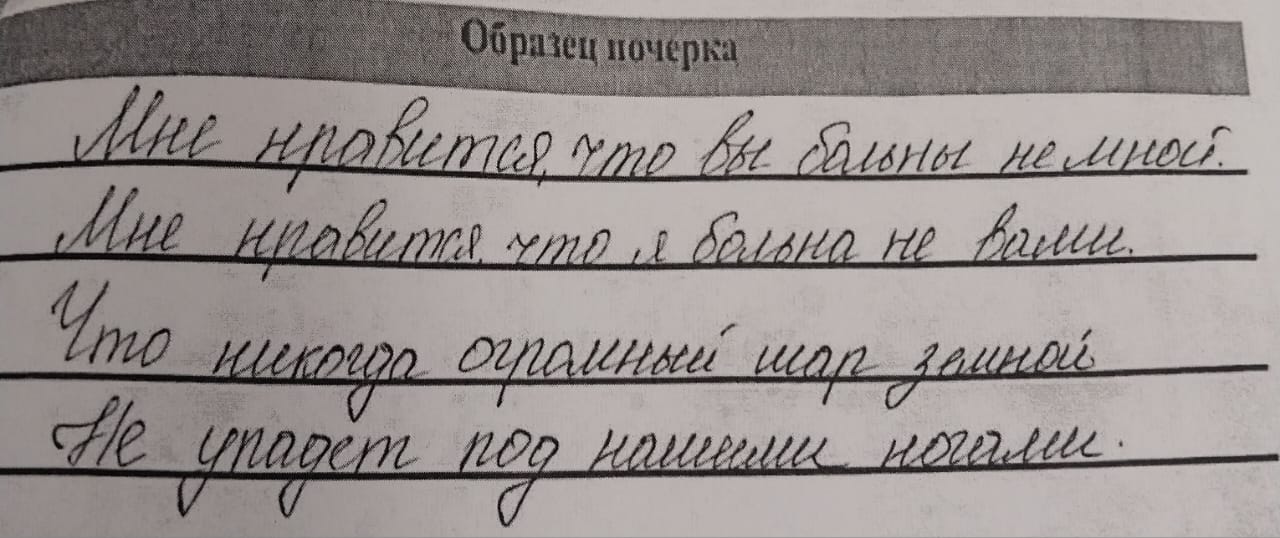 Образец почерка
Мне нравится, что вы больны не мной.
Мне нравится, что я больна не вами.
Что никогда огромный шар земной
Не упадет под нашими ногами.